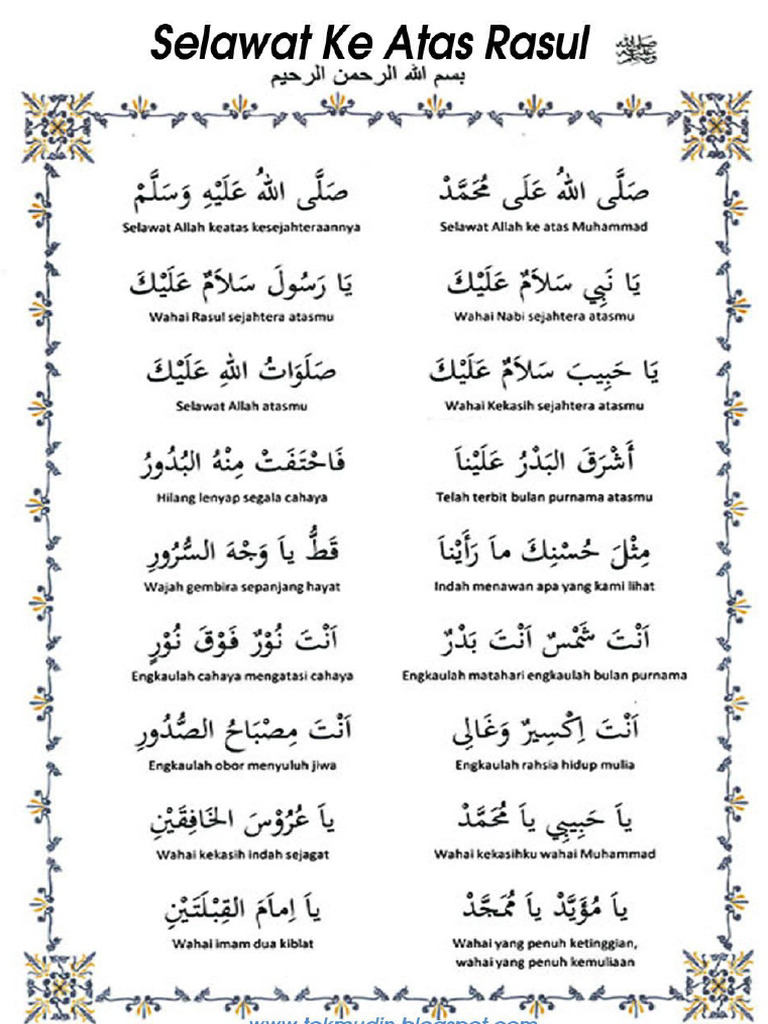 Selawat Ke Atas Rasul ﷺ
بسم الله الرحمن الرحيم
صَلَّى اللهُ عَلَى مُحَمَّدْ
Selawat Allah ke atas Muhammad
صَلَّى اللهُ عَلَيْهِ وَسَلَّمْ
Selawat Allah keatas kesejahteraannya
يَا نَبِي سَلاَمٌ عَلَيْكَ
Wahai Nabi sejahtera atasmu
يَا رَسُولَ سَلاَمٌ عَلَيْكَ
Wahai Rasul sejahtera atasmu
يَا حَبِيبَ سَلاَمٌ عَلَيْكَ
Wahai Kekasih sejahtera atasmu
صَلَوَاتُ اللهِ عَلَيْكَ
Selawat Allah atasmu
أَشْرَقَ البَدْرُ عَلَيْناَ
Telah terbit bulan purnama atasmu
فَاحْتَفَتْ مِنْهُ البُدُورُ
Hilang lenyap segala cahaya
مِثْلَ حُسْنِكَ ماَ رَأَيْناَ
Indah menawan apa yang kami lihat
قَطُّ ياَ وَجْهَ السُّرُورِ
Wajah gembira sepanjang hayat
اَنْتَ شَمْسٌ اَنْتَ بَدْرٌ
Engkaulah matahari engkaulah bulan purnama
اَنْتَ نُوْرٌ فَوْقَ نُوْرٍ
Engkaulah cahaya mengatasi cahaya
اَنْتَ اِكْسِيرٌ وَغَالِى
Engkaulah rahsia hidup mulia
اَنْتَ مِصْبَاحُ الصُّدُورِ
Engkaulah obor menyuluh jiwa
ياَ حَبِيبِي ياَ مُحَمَّدْ
Wahai kekasihku wahai Muhammad
ياَ عُرُوْسَ الخَافِقَيْنِ
Wahai kekasih indah sejagat
ياَ مُؤَيَّدْ ياَ مُمَجَّدْ
Wahai yang penuh ketinggian,
wahai yang penuh kemuliaan
ياَ اِماَمَ القِبْلَتَيْنِ
Wahai imam dua kiblat
www.tokmudin.blogspot.com